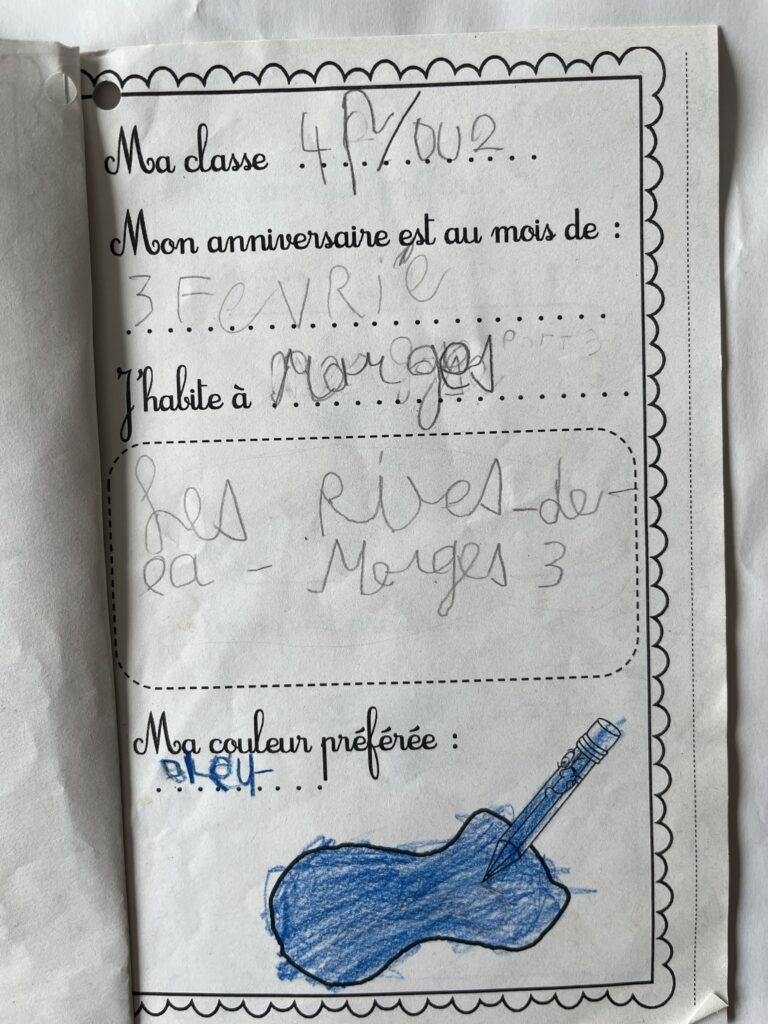 Ma classe 4P/OU2
Mon anniversaire est au mois de :
3 FevRie
J'habite à Morges
Les Rives-de-
ea - Morges 3
Ma couleur préférée :
bleu